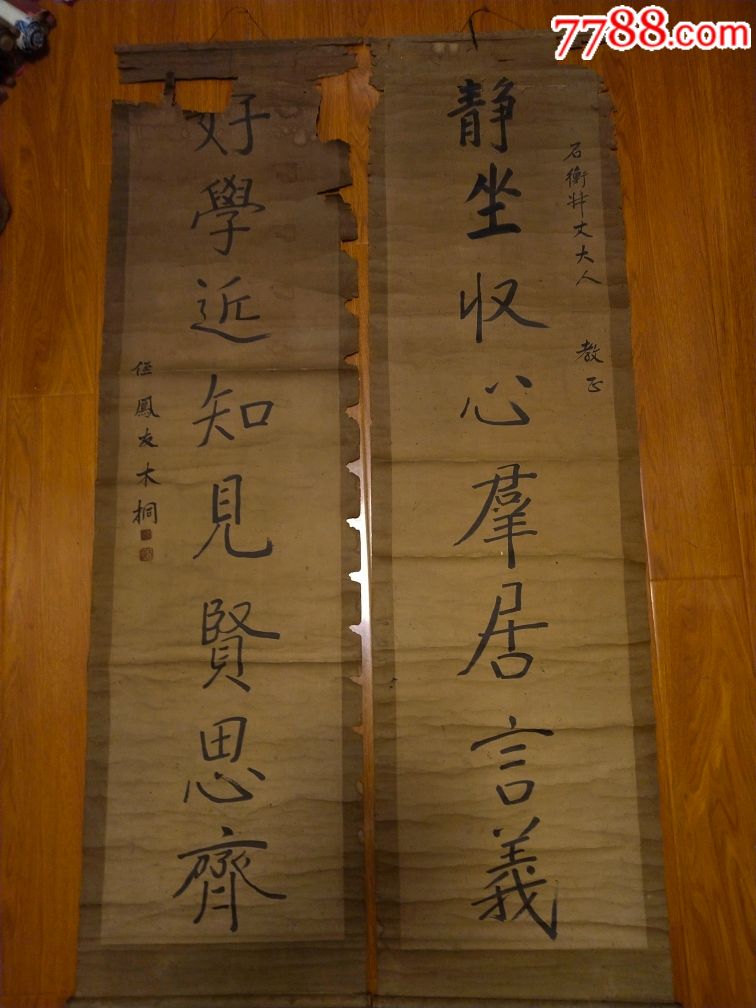 7788.com
石衡姻丈大人 教正
静坐收心羣居言義
好學近知見賢思齊
侄鳳友木桐